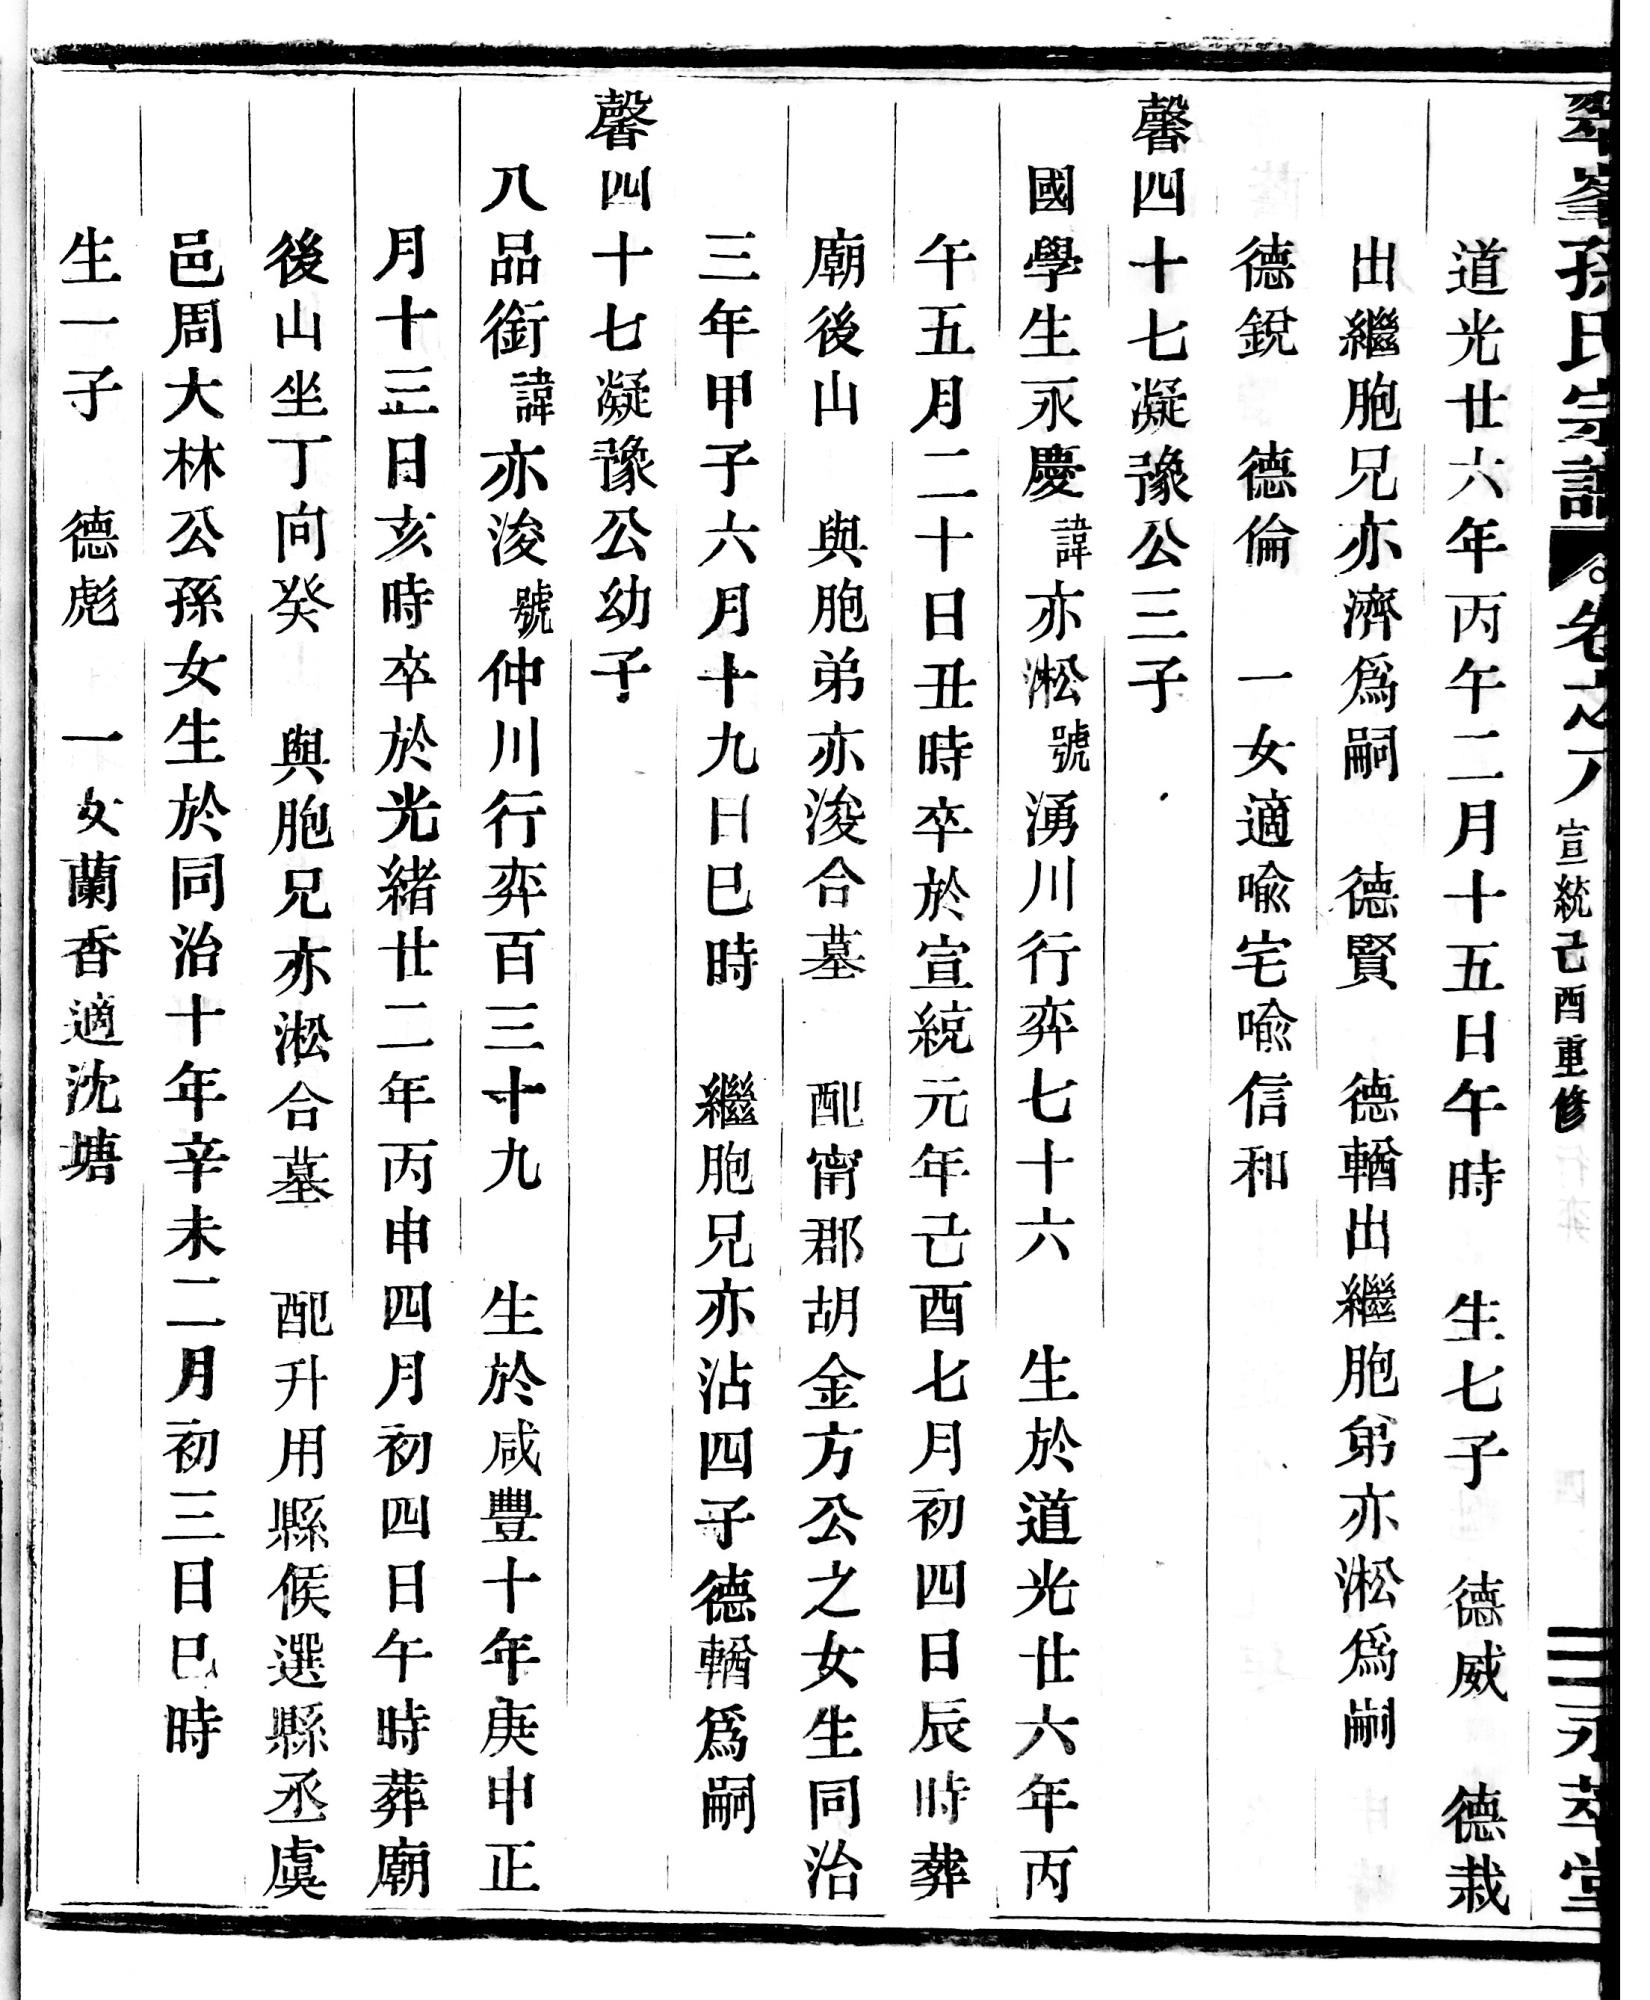 翠峯孫氏宗譜 卷之八 宣統己酉重修 二 永萃堂
道光廿六年丙午二月十五日午時 生七子 德威 德栽
出繼胞兄亦濟爲嗣 德賢 德輶出繼胞弟亦淞爲嗣
德銳 德倫 一女適喩宅喩信和
馨四十七凝豫公三子
國學生永慶諱亦淞號湧川行弈七十六 生於道光廿六年丙
午五月二十日丑時卒於宣統元年己酉七月初四日辰時葬
廟後山 與胞弟亦浚合墓 配甯郡胡金方公之女生同治
三年甲子六月十九日巳時 繼胞兄亦沾四子德輶爲嗣
馨四十七凝豫公幼子
八品銜諱亦浚號仲川行弈百三十九 生於咸豐十年庚申正
月十三日亥時卒於光緒廿二年丙申四月初四日午時葬廟
後山坐丁向癸 與胞兄亦淞合墓 配升用縣候選縣丞虞
邑周大林公孫女生於同治十年辛未二月初三日巳時
生一子 德彪 一女蘭香適沈塘